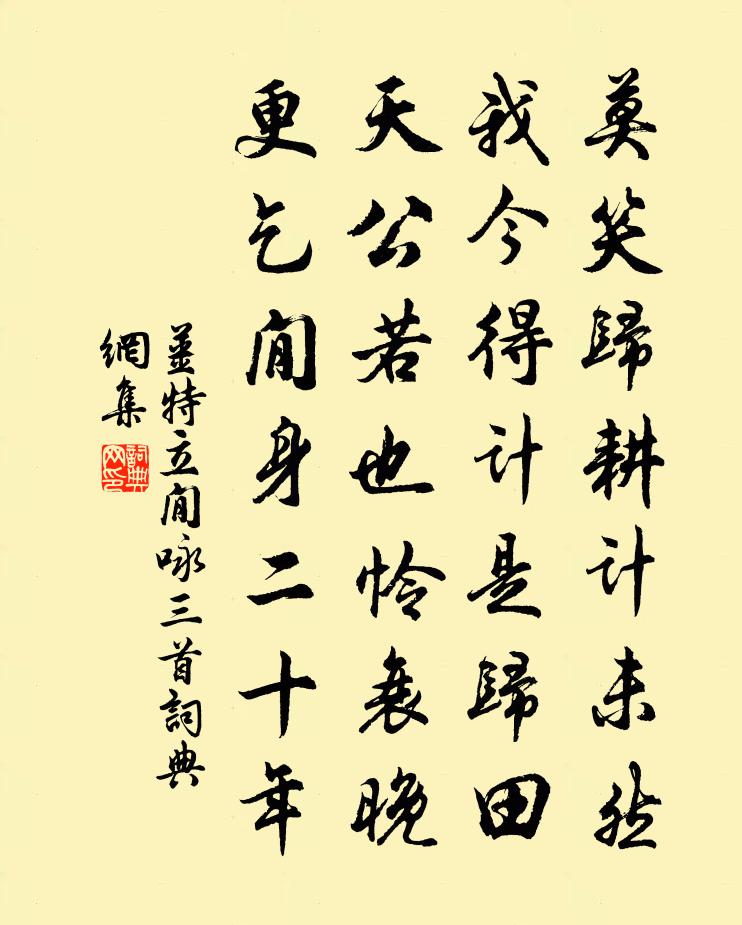 莫笑歸耕計未然
我今得計是歸田
天公若也怜衰晚
更乞閒身二十年
姜特立閒咏三首詞典
網集
詞典
网印